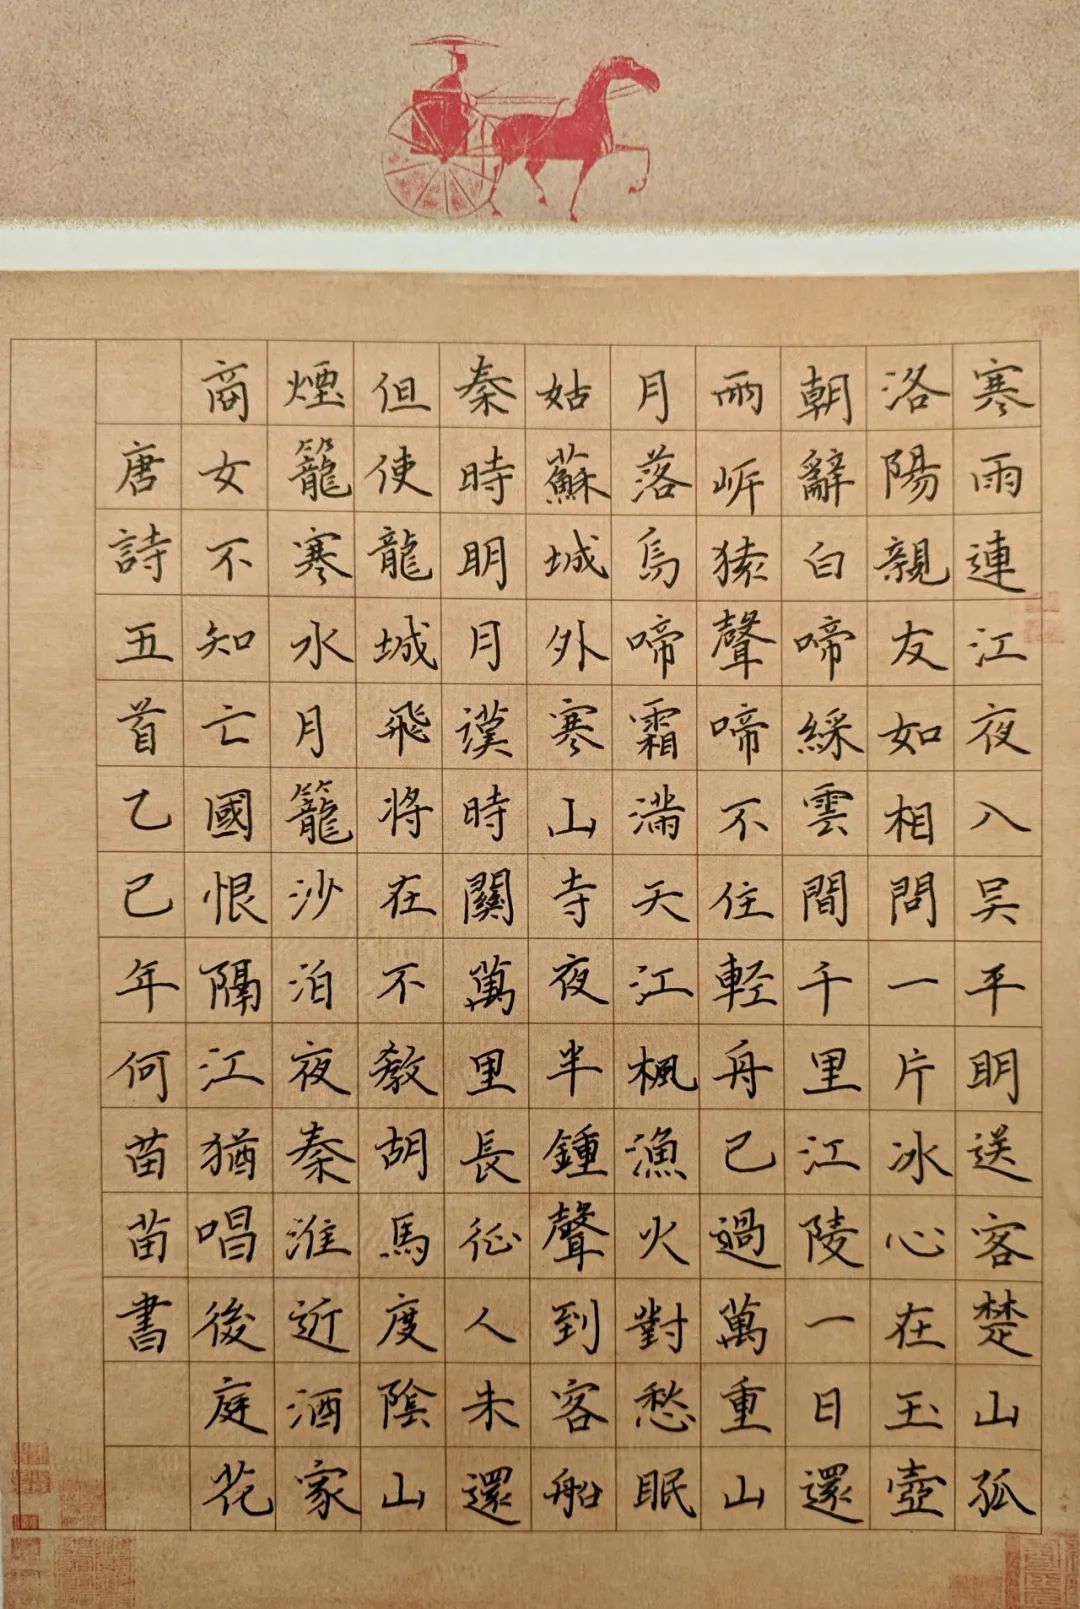 寒雨連江夜入吴平明送客楚山孤
洛陽親友如相問一片冰心在玉壺
朝辭白啼綵雲間千里江陵一日還
兩岸猿聲啼不住輕舟已過萬重山
月落烏啼霜滿天江楓漁火對愁眠
姑蘇城外寒山寺夜半鍾聲到客船
秦時明月漢時關萬里長征人未還
但使龍城飛將在不教胡馬度陰山
煙籠寒水月籠沙泊夜秦淮近酒家
商女不知亡國恨隔江猶唱後庭花
唐詩五首乙巳年何苗苗書